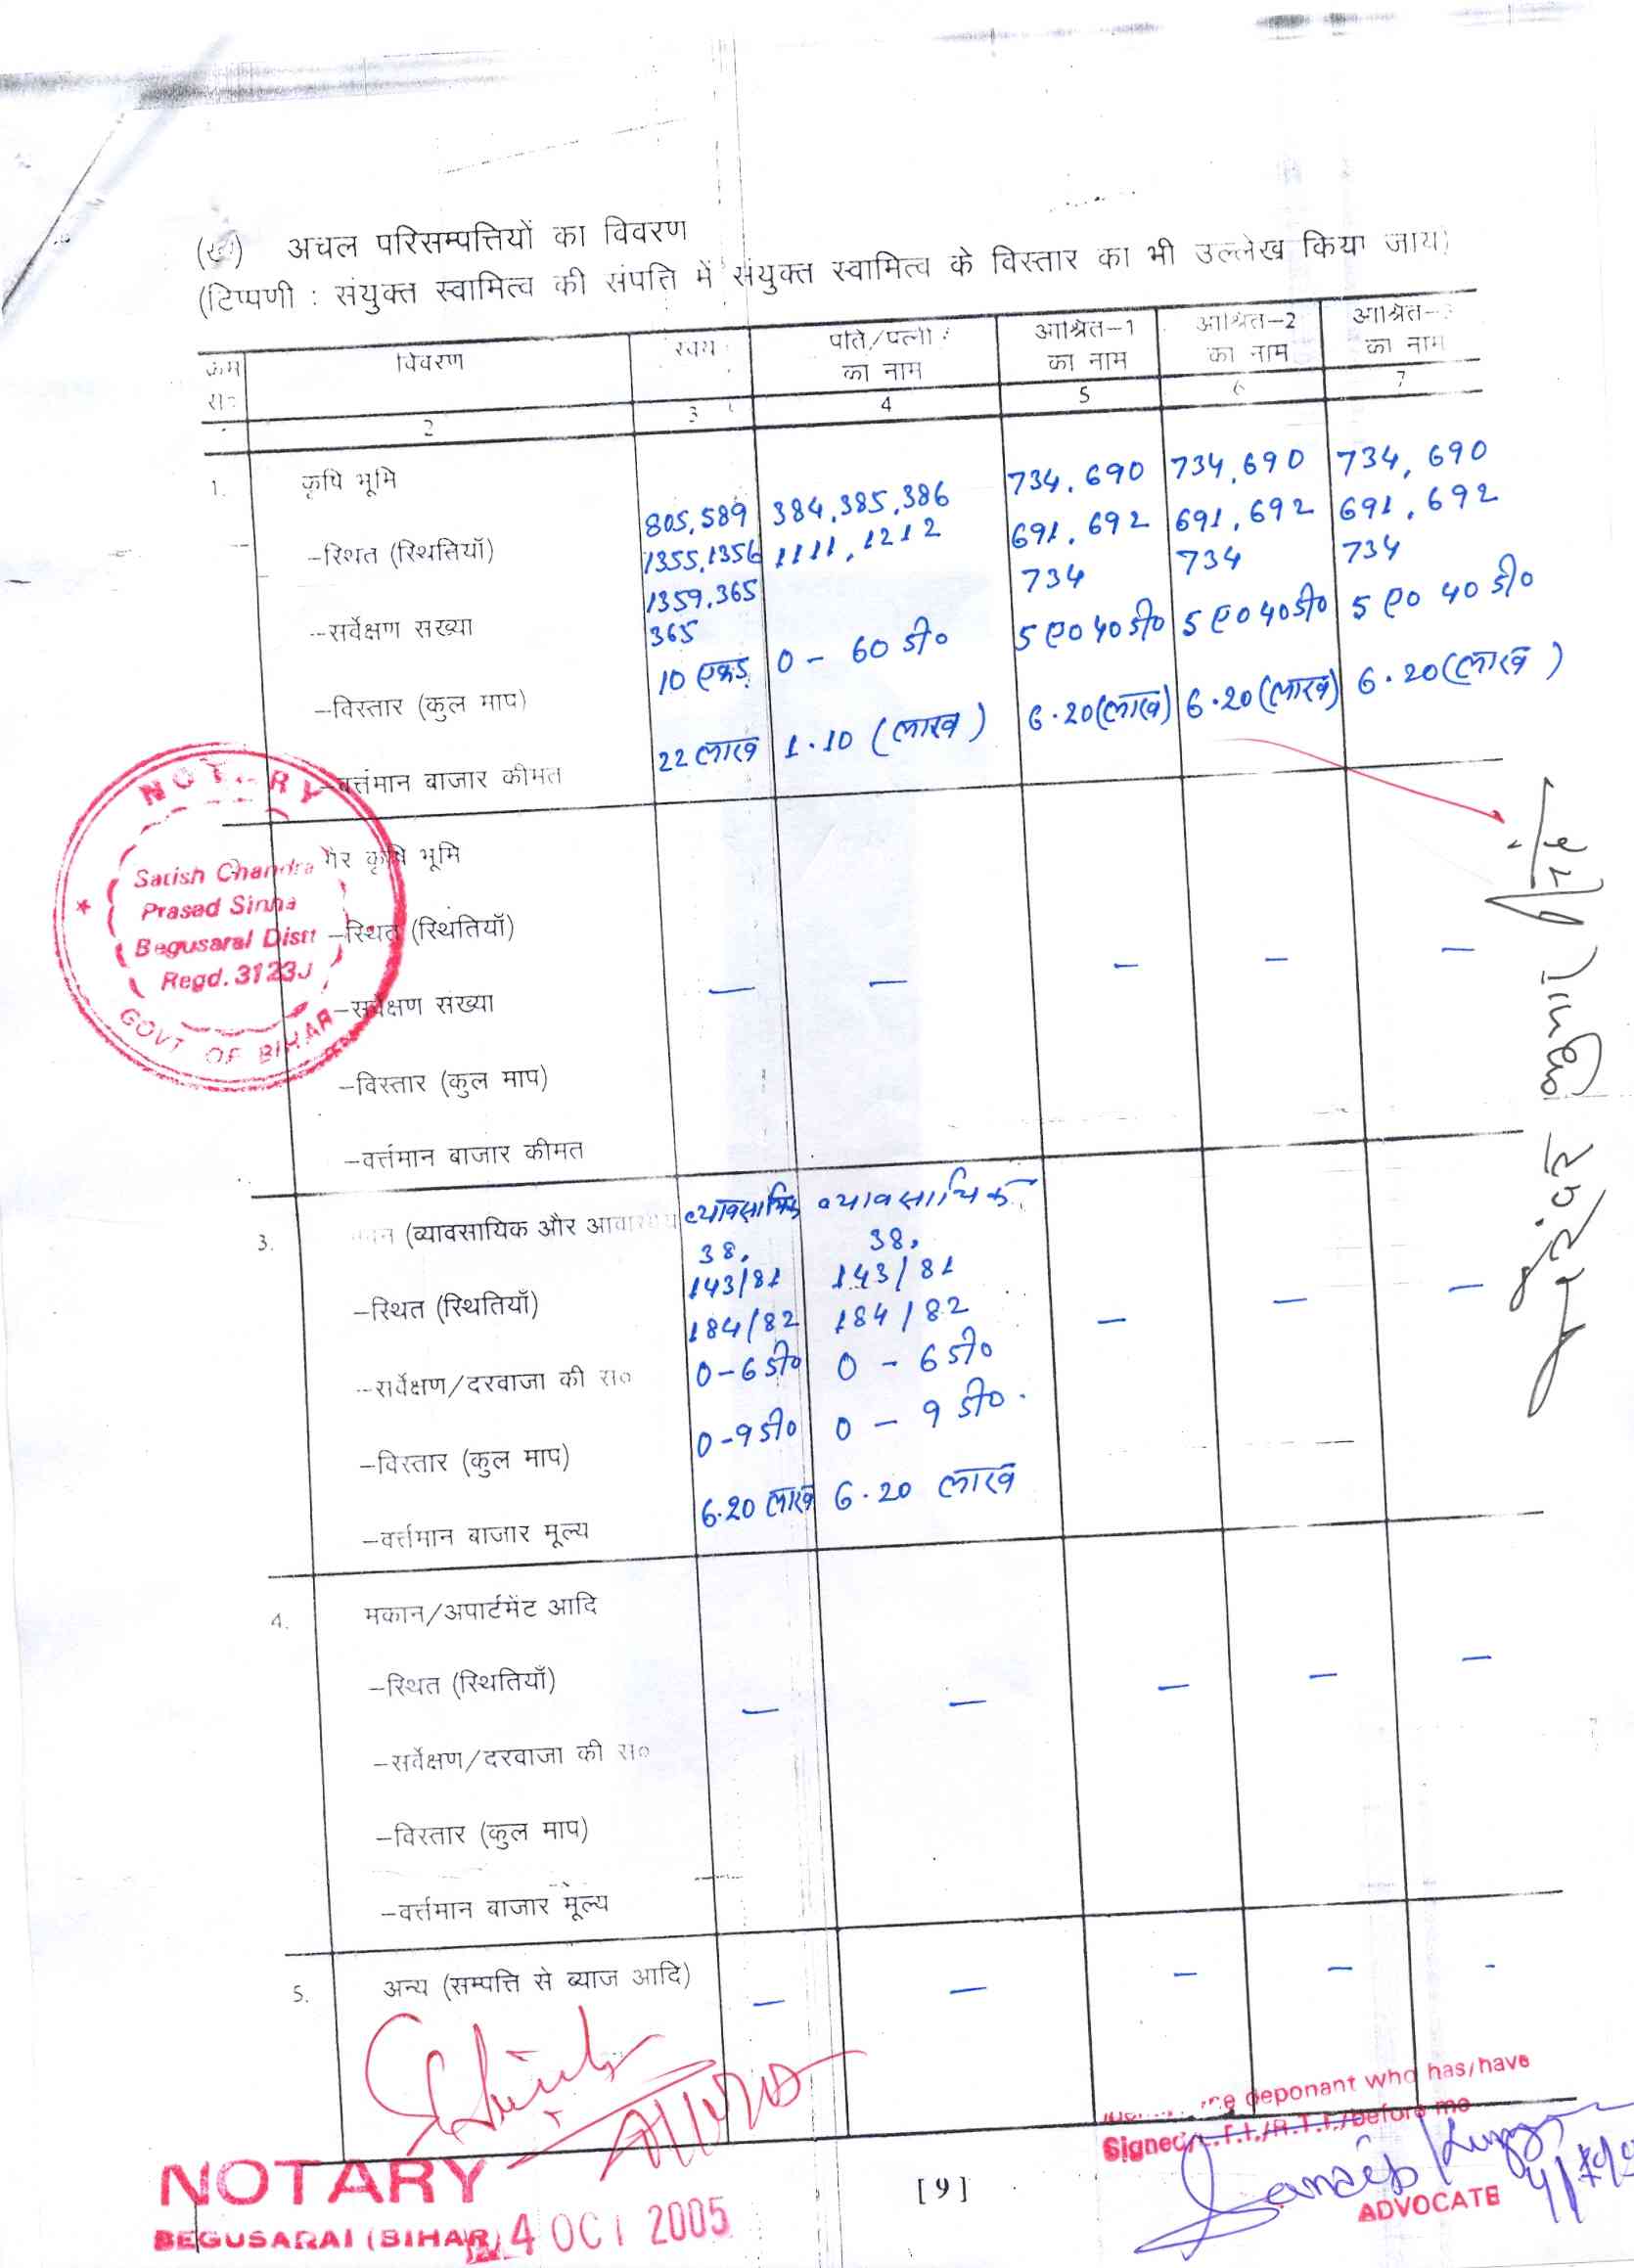 अचल परिसम्पत्तियों का विवरण
(टिप्पणी : संयुक्त स्वामित्व की संपत्ति में संयुक्त स्वामित्व के विस्तार का भी उल्लेख किया जाय)
क्रम विवरण स्वयं पति/पत्नी आश्रित–1 आश्रित–2 आश्रित–
सं० का नाम का नाम का नाम का नाम
2 3 4 5 6 7
1. कृषि भूमि
805,589 384,385,386 734,690 734,690 734,690
–स्थित (स्थितियाँ) 1355,1356 1111,1212 691,692 691,692 691,692
1359,365 734 734 734
–सर्वेक्षण सख्या 365
–विस्तार (कुल माप) 10 एकड़ 0 – 60 डी० 5 ए० 40 डी० 5 ए० 40 डी० 5 ए० 40 डी०
–वर्त्तमान बाजार कीमत 22 लाख 1.10 (लाख) 6.20 (लाख) 6.20 (लाख) 6.20 (लाख)
गैर कृषि भूमि
–स्थित (स्थितियाँ) – – – – –
–सर्वेक्षण संख्या
–विस्तार (कुल माप)
–वर्त्तमान बाजार कीमत
3. (व्यावसायिक और व्यावसायिक व्यावसायिक
38, 38,
–स्थित (स्थितियाँ) 143/81 143/81 – – –
184/82 184/82
–सर्वेक्षण/दरवाजा की स० 0–6 डी० 0 – 6 डी०
–विस्तार (कुल माप) 0–9 डी० 0 – 9 डी०.
–वर्त्तमान बाजार मूल्य 6.20 लाख 6.20 लाख
4. मकान/अपार्टमेंट आदि
–स्थित (स्थितियाँ) – – – – –
–सर्वेक्षण/दरवाजा की स०
–विस्तार (कुल माप)
–वर्त्तमान बाजार मूल्य
5. अन्य (सम्पत्ति से ब्याज आदि) – – – – -
NOTARY
Satish Chandra
Prasad Sinha
Begusarai Distt
Regd. 3123J
GOVT OF BIHAR
deponant who has/have
Signed/L.T.I./R.T.I./before me
ADVOCATE
[9]
NOTARY
BEGUSARAI (BIHAR)
4 OCT 2005